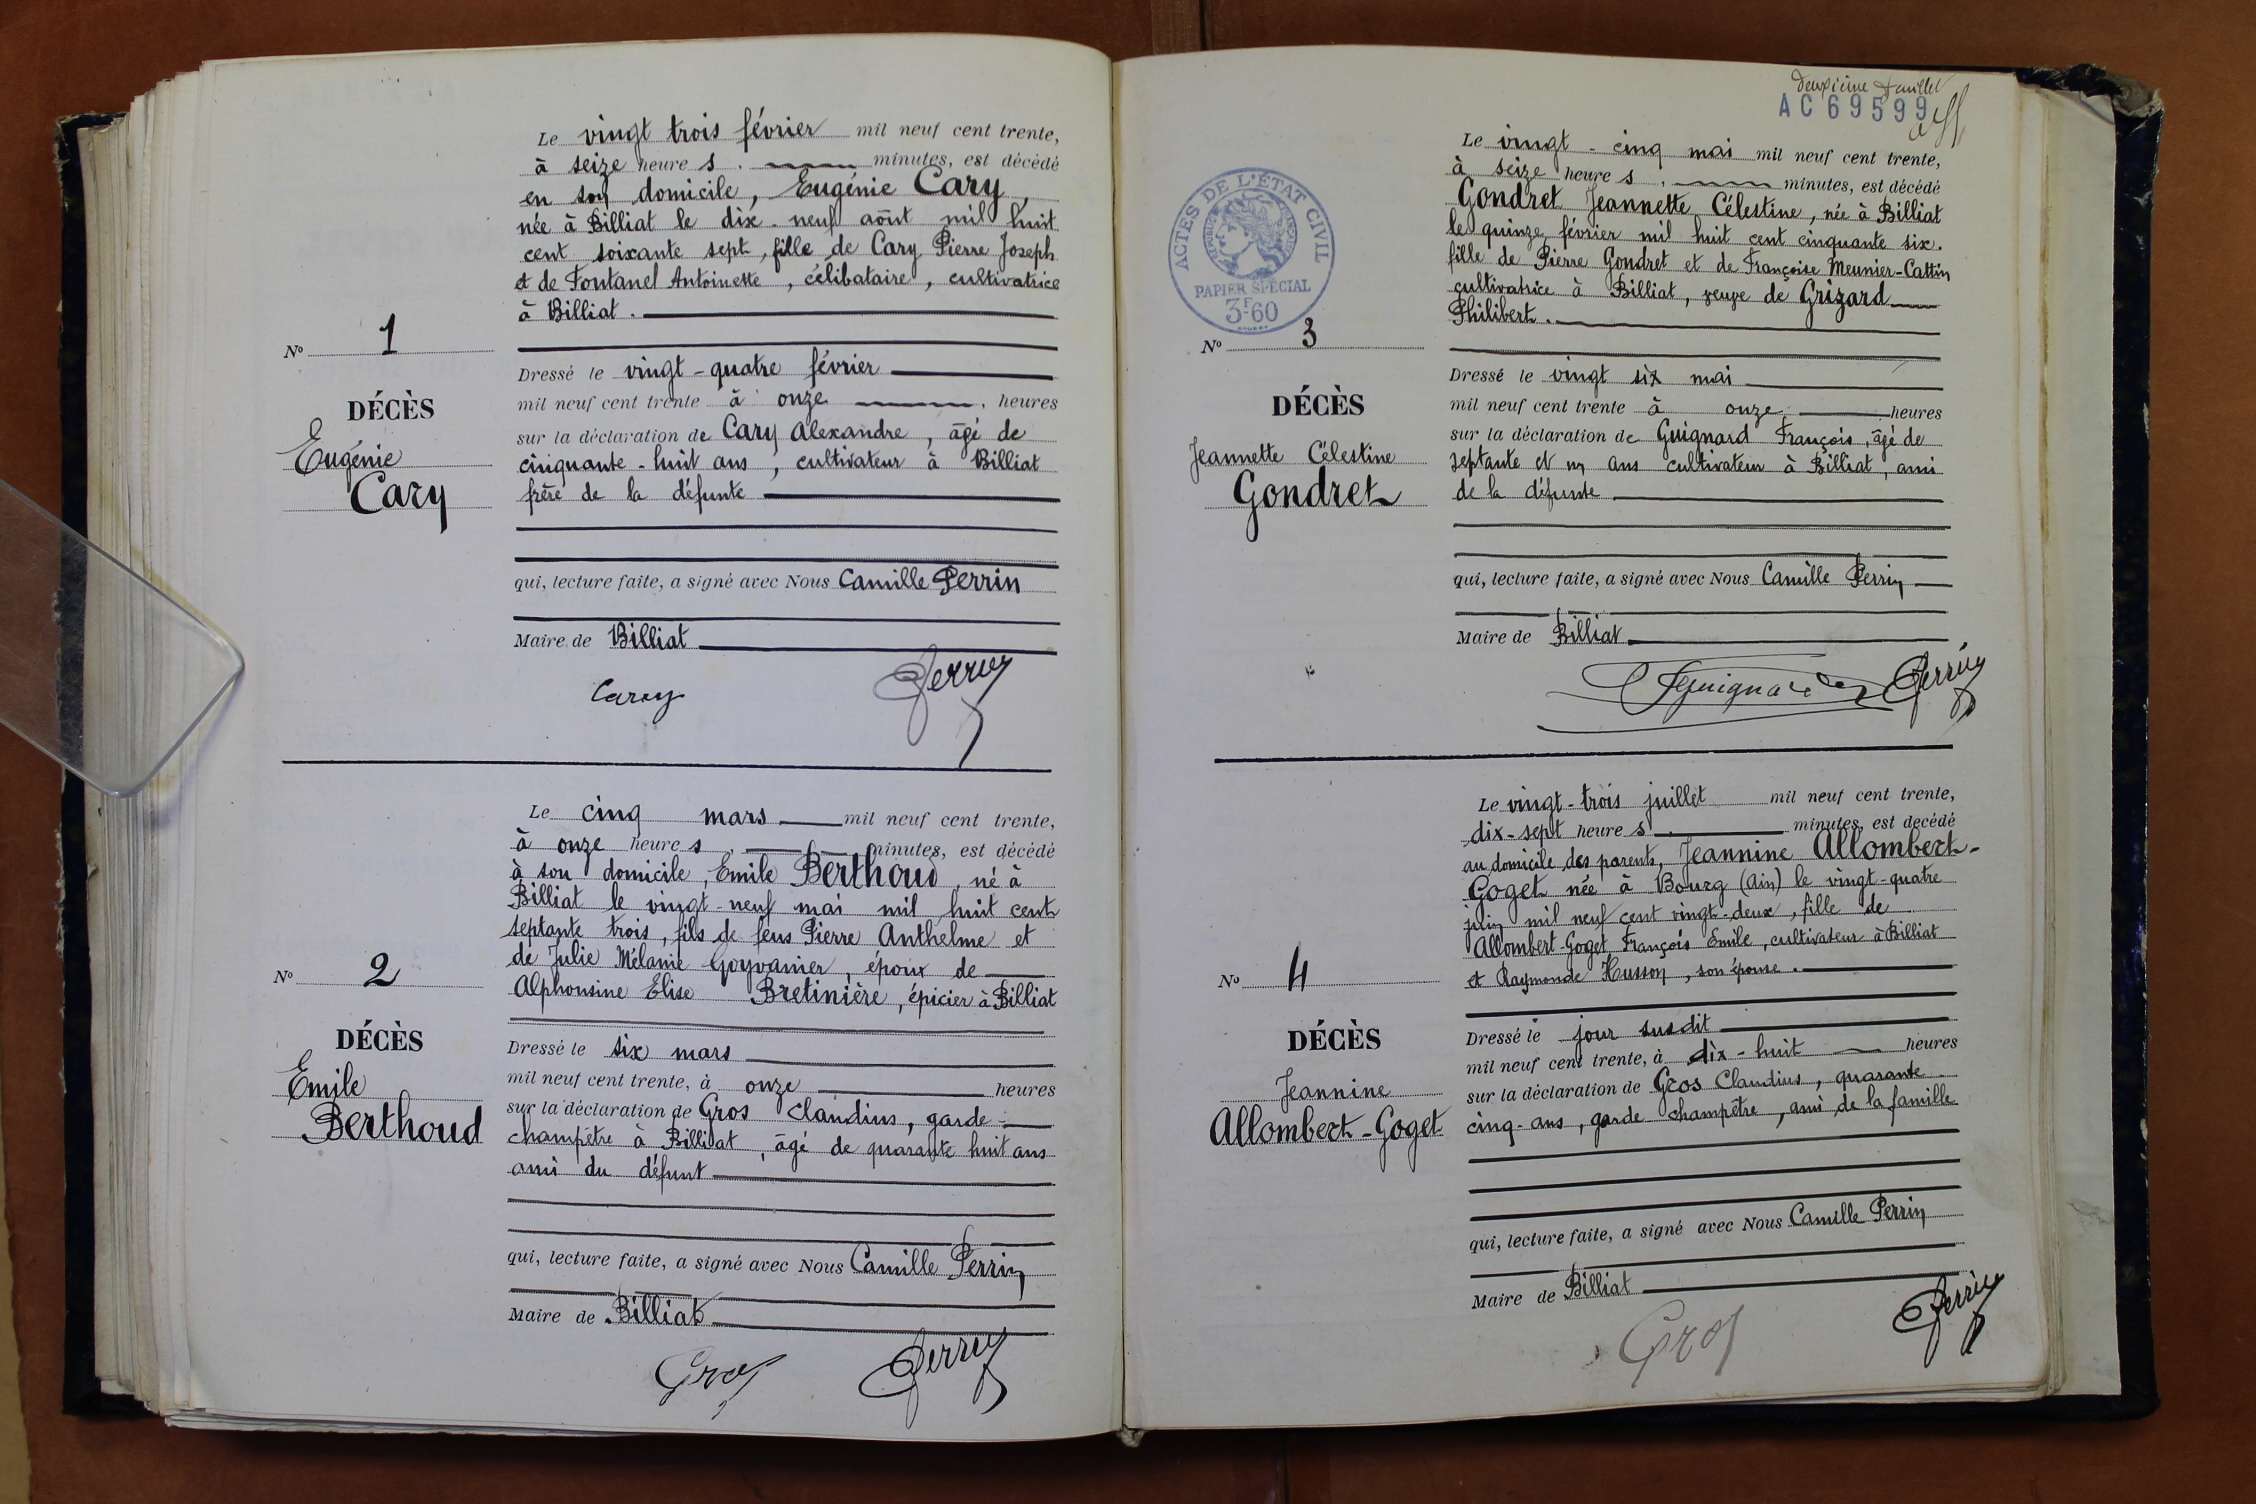 Le vingt trois février mil neuf cent trente,
à seize heures . minutes, est décédé
en son domicile, Eugénie Cary,
née à Billiat le dix-neuf août mil huit
cent soixante sept, fille de Cary Pierre Joseph
et de Fontanel Antoinette, célibataire, cultivatrice
à Billiat.
N° 1
DÉCÈS
Eugénie
Cary
Dressé le vingt-quatre février
mil neuf cent trente à onze , heures
sur la déclaration de Cary Alexandre, âgé de
cinquante-huit ans, cultivateur à Billiat
frère de la défunte
qui, lecture faite, a signé avec Nous Camille Perrin
Maire de Billiat
Cary
Perrin
Le cinq mars mil neuf cent trente,
à onze heures , minutes, est décédé
à son domicile, Emile Berthoud, né à
Billiat le vingt-neuf mai mil huit cent
septante trois, fils de feus Pierre Anthelme et
de Julie Mélanie Goyvanier, époux de
Alphonsine Elise Bretinière, épicier à Billiat
N° 2
DÉCÈS
Emile
Berthoud
Dressé le six mars
mil neuf cent trente, à onze heures
sur la déclaration de Gros Claudius, garde-
champêtre à Billiat, âgé de quarante huit ans
ami du défunt
qui, lecture faite, a signé avec Nous Camille Perrin
Maire de Billiat
Gros
Perrin
deuxième feuillet
AC 69599
ACTES DE L'ÉTAT CIVIL
PAPIER SPÉCIAL
3F60
Le vingt-cinq mai mil neuf cent trente,
à seize heures . minutes, est décédé
Gondret Jeannette Célestine, née à Billiat
le quinze février mil huit cent cinquante six.
fille de Pierre Gondret et de Françoise Meunier-Cattin
cultivatrice à Billiat, veuve de Grizard
Philibert.
N° 3
DÉCÈS
Jeannette Célestine
Gondret
Dressé le vingt six mai
mil neuf cent trente à onze, heures
sur la déclaration de Guignard François, âgé de
septante et un ans cultivateur à Billiat, ami
de la défunte
qui, lecture faite, a signé avec Nous Camille Perrin
Maire de Billiat
Guignard
Perrin
Le vingt-trois juillet mil neuf cent trente,
dix-sept heures . minutes, est decédé
au domicile des parents, Jeannine Allombert-
Goget née à Bourg (Ain) le vingt-quatre
juin mil neuf cent vingt-deux, fille de
Allombert-Goget François Emile, cultivateur à Billiat
et Raymonde Husson, son épouse.
N° 4
DÉCÈS
Jeannine
Allombert-Goget
Dressé le jour susdit
mil neuf cent trente, à dix-huit heures
sur la déclaration de Gros Claudius, quarante
cinq-ans, garde champêtre, ami de la famille
qui, lecture faite, a signé avec Nous Camille Perrin
Maire de Billiat
Gros
Perrin